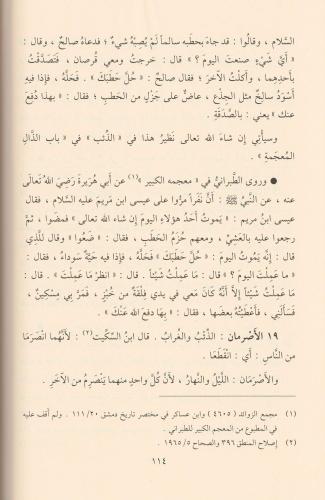 السَّلام ، وقالُوا : قد جاءَ بحطبه سالماً لَمْ يُصِبْهُ شيءٌ ؛ فدعاهُ صالحٌ ، وقال :
« أَيَّ شَيْءٍ صنعتَ اليومَ ؟ » قال : خرجتُ ومعي قُرصان ، فتَصَدَّقْتُ
بأحدِهما ، وأكلتُ الآخرَ ؛ فقال صالحٌ : « حُلَّ حَطَبَكَ » . فَحَلَّهُ ، فإذا فيه
أَسْوَدُ سالخٌ مثل الجِذْعِ ، عاضٌّ على جَزْلٍ من الحطبِ ؛ فقال : « بهذا دُفِعَ
عنك » يعني : بالصَّدَقَةِ .
وسيأتي إن شاءَ الله تعالى نَظيرُ هذا في « الذِّئب » في « باب الذَّالِ
المُعجمةِ » .
● وروى الطَّبرانيُّ في « معجمه الكبير »(١) عن أبي هُرَيرةَ رَضِيَ اللهُ تَعالَى
عنه ، عن النَّبيِّ ﷺ : أَنَّ نَفَراً مرُّوا على عيسى بن مَريم عليه السَّلام ، فقال
عيسى ابن مريم : « يَموتُ أَحَدُ هؤلاءِ اليومَ إن شاء الله تعالى » فمضوا ، ثمَّ
رجعوا عليه بالعَشِيِّ ، ومعهم حُزَمُ الحَطَبِ ، فقال : « ضَعُوا » وقال للَّذي
قال : إنَّه يَموتُ اليومَ : « حُلَّ حَطَبَكَ » فحلَّهُ ، فإذا فيه حَيَّةٌ سَوداءُ ، فقال :
« ما عَمِلتَ اليومَ ؟ » قال : ما عَمِلْتُ شَيْئاً . قال : « انظرْ ما عَمِلْتَ » . قال :
مَا عَمِلْتُ شَيْئاً إلاَّ أَنَّهُ كَانَ مَعي في يدي فِلْقَةٌ من خُبزٍ ، فمَرَّ بي مِسْكينٌ ،
فسألني ، فأعْطَيْتُهُ بعضَها ، فقال : « بِها دفعَ الله عَنْكَ » .
١٩ الأَصْرمان : الذِّئبُ والغُرابُ . قال ابنُ السِّكِّيت(٢) : لأنَّهُما انْصَرَمَا
من النَّاسِ : أي : انْقَطَعَا .
والأَصْرَمان : اللَّيْلُ والنَّهارُ ، لأنَّ كُلَّ واحدٍ منهما يَنْصَرِمُ من الآخَرِ .
(١) مجمع الزوائد ( ٤٦٠٥ ) وابن عساكر في مختصر تاريخ دمشق ١١١/٢٠ . ولم أقف عليه
في المطبوع من المعجم الكبير للطبراني .
(٢) إصلاح المنطق ٣٩٦ والصحاح ١٩٦٥/٥ .
١١٤